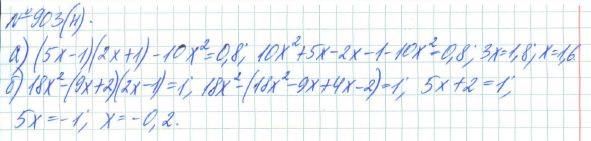 № 903(н).
а) (5x-1)(2x+1)-10x²=0,8; 10x²+5x-2x-1-10x²=0,8; 3x=1,8; x=1,6
б) 18x²-(9x+2)(2x-1)=1; 18x²-(18x²-9x+4x-2)=1; 5x+2=1;
5x=-1; x=-0,2.